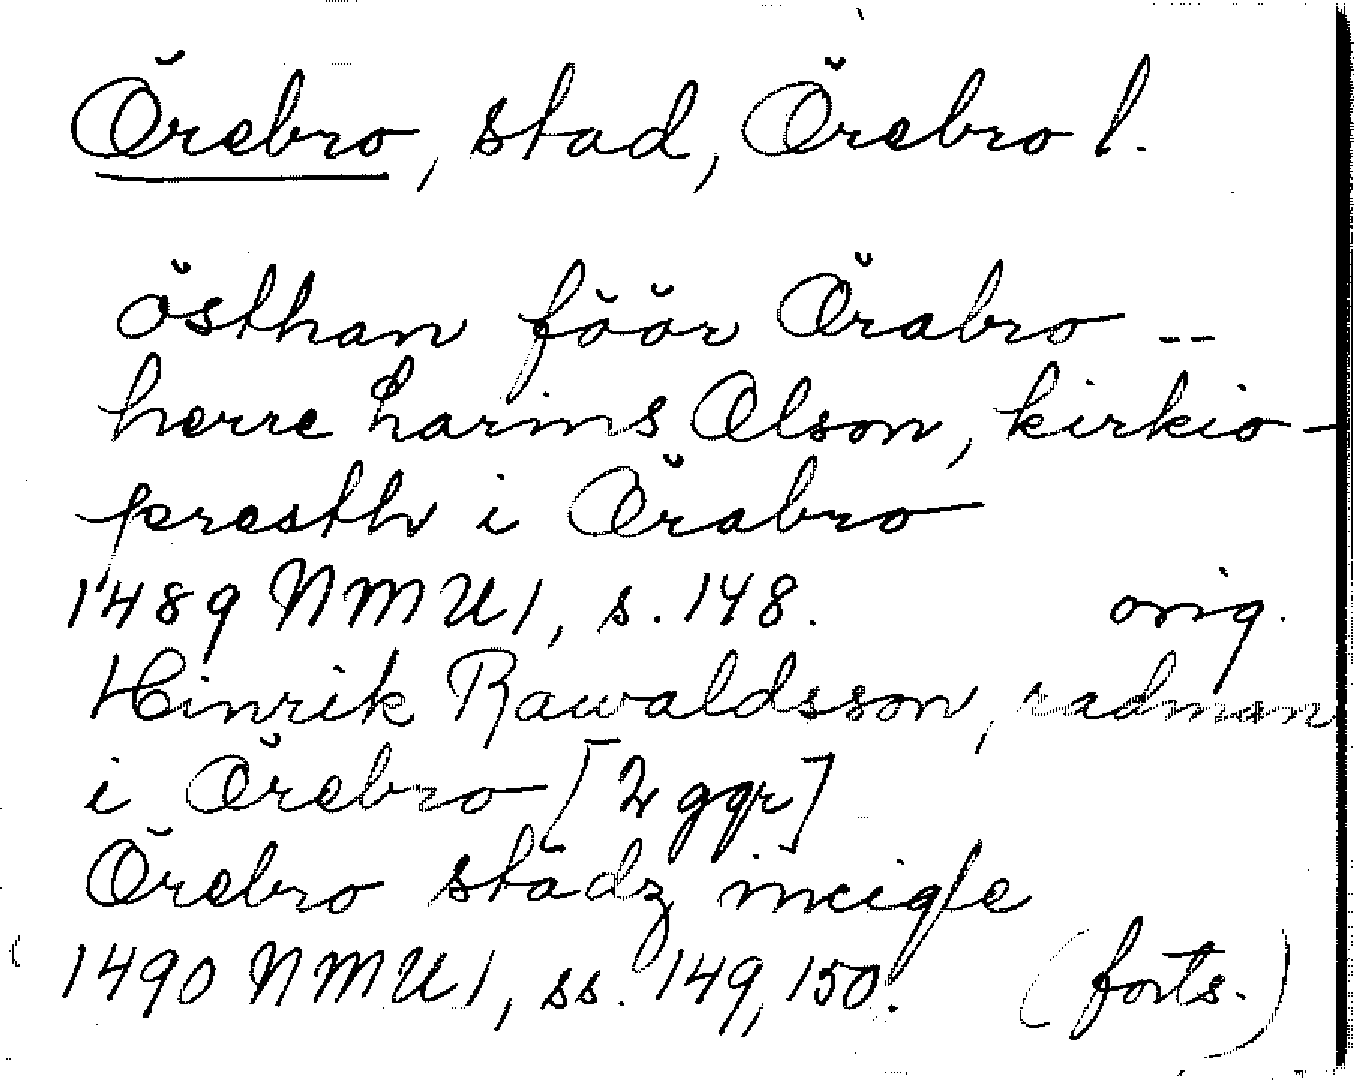 Örebro, stad, Örebro l.
östhan föör Örabro --
herre Larins Olson, kirkio-
presth i Örabro
1489 NMU1, s. 148. orig.
Hinrik Rawaldsson, radman
i Örebro [2 ggr]
Örebro stadz incigle
1490 NMU1, ss. 149, 150. (forts.)